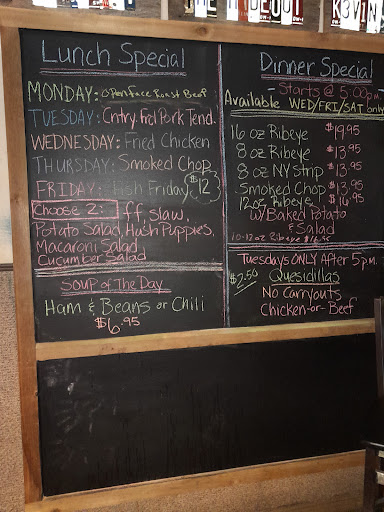 THE HIDEOUT
K3VIN
Lunch Special
MONDAY: Open Face Roast Beef
TUESDAY: Cntry Frd Pork Tend.
WEDNESDAY: Fried Chicken
THURSDAY: Smoked Chop
FRIDAY: Fish Friday $12
Choose 2: ff, slaw,
Potato Salad, Hush Puppies,
Macaroni Salad
Cucumber Salad
SOUP OF THE DAY
HAM & BEANS OR CHILI
$6.95
Dinner Special
- Starts @ 5:00pm -
Available WED/FRI/SAT only
16 oz Ribeye $19.95
8 oz Ribeye $13.95
8 oz NY STRIP $13.95
Smoked Chop $13.95
12oz Ribeye $16.95
w/ Baked Potato
& Salad
10-12 oz Ribeye $16.95
Tuesdays ONLY After 5pm.
$2.50 Quesidillas
No Carryouts
Chicken -or- Beef